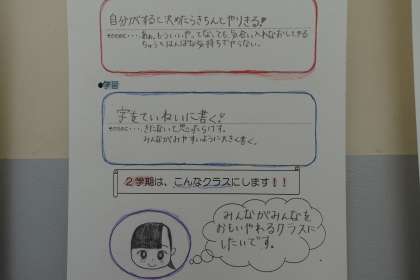 自分がすると決めたらきちんとやりきる!
そのために・・・あぁ、もういいや、ってなっても気合い入れなおしてやる
ちゅうとはんぱな気持ちでやらない。
●学習
字をていねいに書く。
そのために・・・きたないと思ったらけす。
みんながみやすいように大きく書く。
2学期は、こんなクラスにします!!
みんながみんなを
おもいやれるクラスに
したいです。